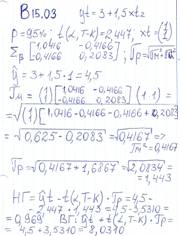 В15.03 ŷt = 3 + 1,5xt2
P = 95% · t(α, T-K) = 2,447; xt = (1 1)
Σβ = [1,0416 -0,4166 -0,4166 0,2083]; Γp =
ŷ = 3 + 1,5 · 1 = 4,5
Γм = √(1 1) [1,0416 -0,4166 -0,4166 0,2083] (1 1) =
= √(1) [1,0416 - 0,4166 - 0,4166 + 0,2083]
= √0,625 - 0,2083 = √0,4167 ⇒
Γм² = 0,4167
Γp = √0,4167 + 1,6867 = √2,0834 =
= 1,443
НГ = ŷt - t(α, T-K) · Γp = 4,5 -
- 2,447 · 1,443 = 4,5 - 3,5310 =
= 0,969 ВГ: ŷt + t(α, T-K) · Γp =
= 4,5 + 3,5310 = 8,0310